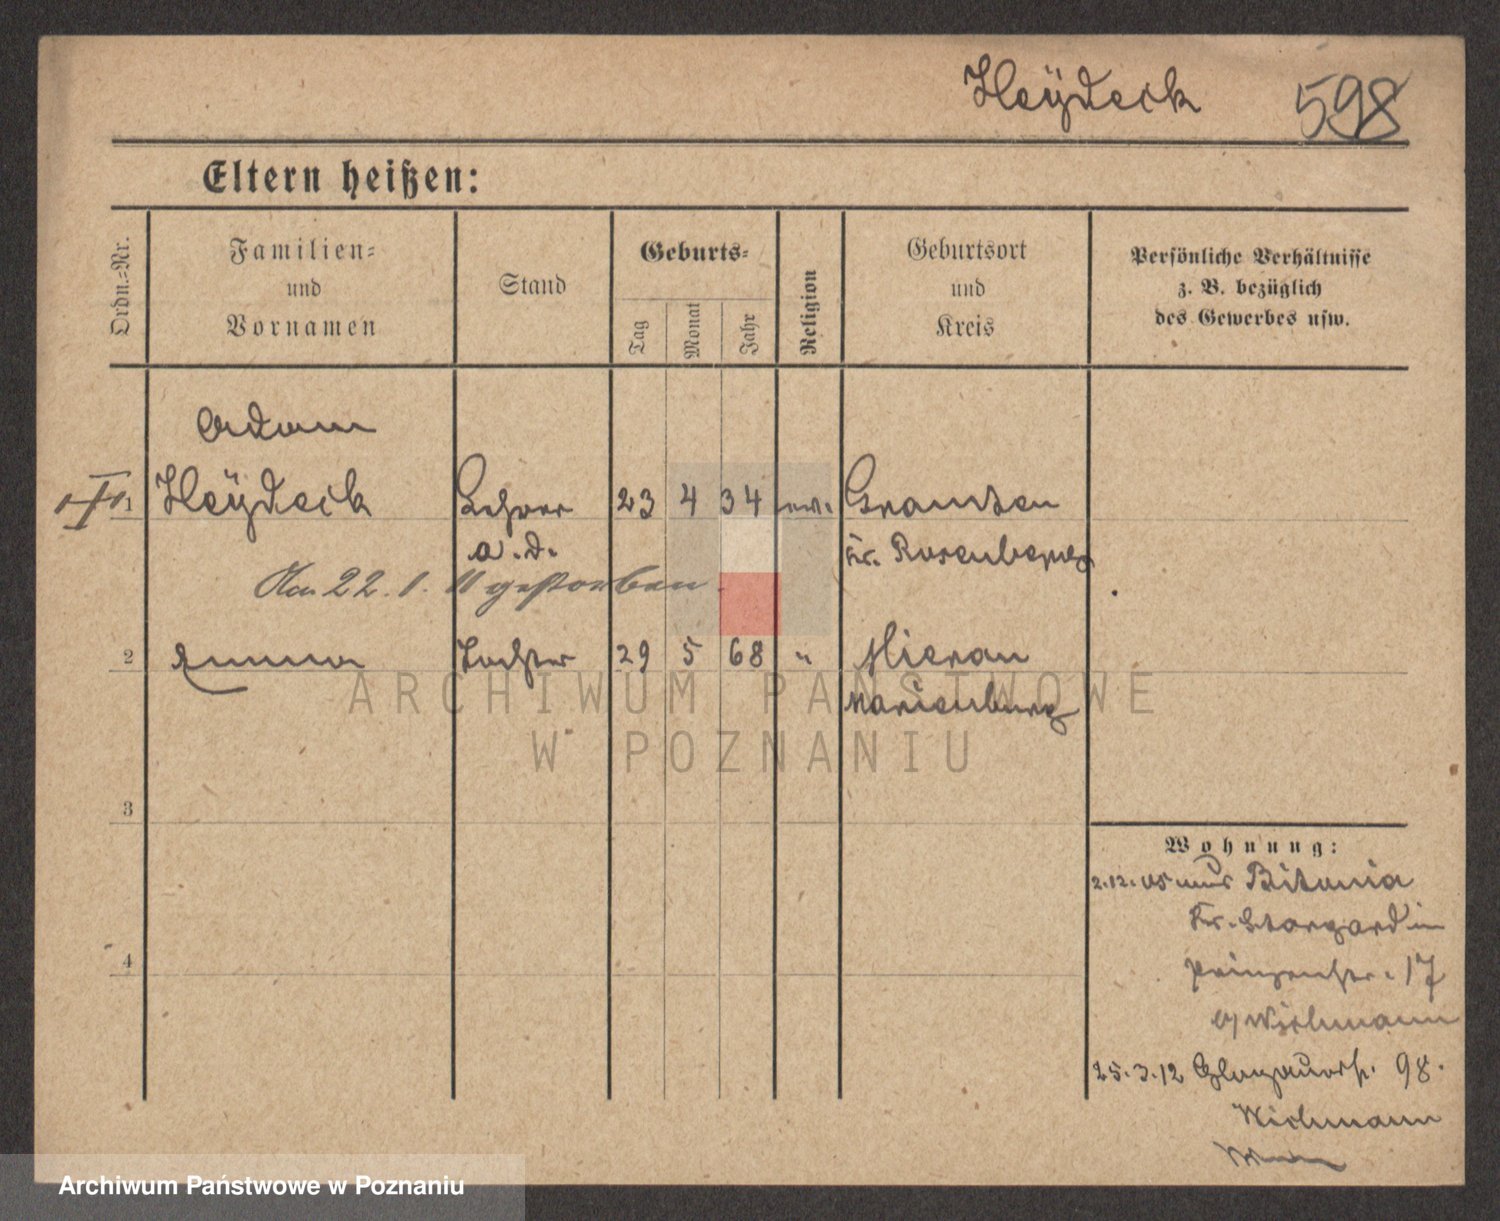 Heÿdeck 598
Eltern heißen:
Ordn.-Nr.
Familien-
und
Vornamen
Stand
Geburts-
Tag
Monat
Jahr
Religion
Geburtsort
und
Kreis
Persönliche Verhältnisse
z. B. bezüglich
des Gewerbes usw.
Adam
1 Heÿdeck Lehrer 23 4 34 ev. Gramten
a. d. Kr. Rosenberg
Am 22. 1. 11 gestorben.
2 Emma Tochter 29 5 68 "
Marienburg
3
4
Wohnung:
2.12.05 aus
Kr. Stargard in
Prinzenstr. 17
b/ Wichmann
25.3.12 Glogauerstr. 98.
Wichmann
ARCHIWUM PAŃSTWOWE
W POZNANIU
Archiwum Państwowe w Poznaniu